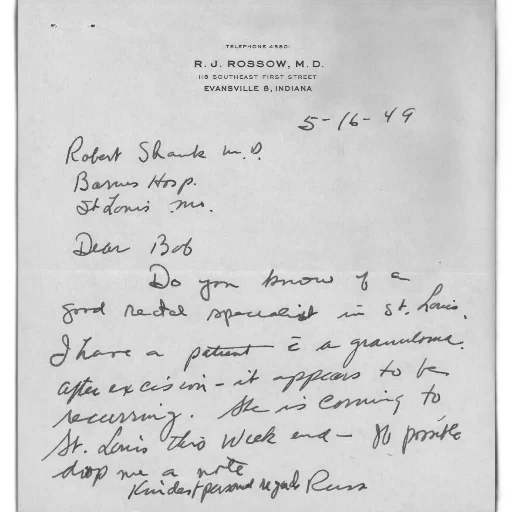 TELEPHONE 45501
R. J. ROSSOW, M. D.
118 SOUTHEAST FIRST STREET
EVANSVILLE 8, INDIANA
5-16-49
Robert Shank M.D.
Barnes Hosp.
St Louis Mo.
Dear Bob
Do you know of a
good rectal specialist in St. Louis.
I have a patient c̄ a granuloma.
after excision - it appears to be
recurring. She is coming to
St. Louis this week end - If possible
drop me a note
Kindest personal regards Russ